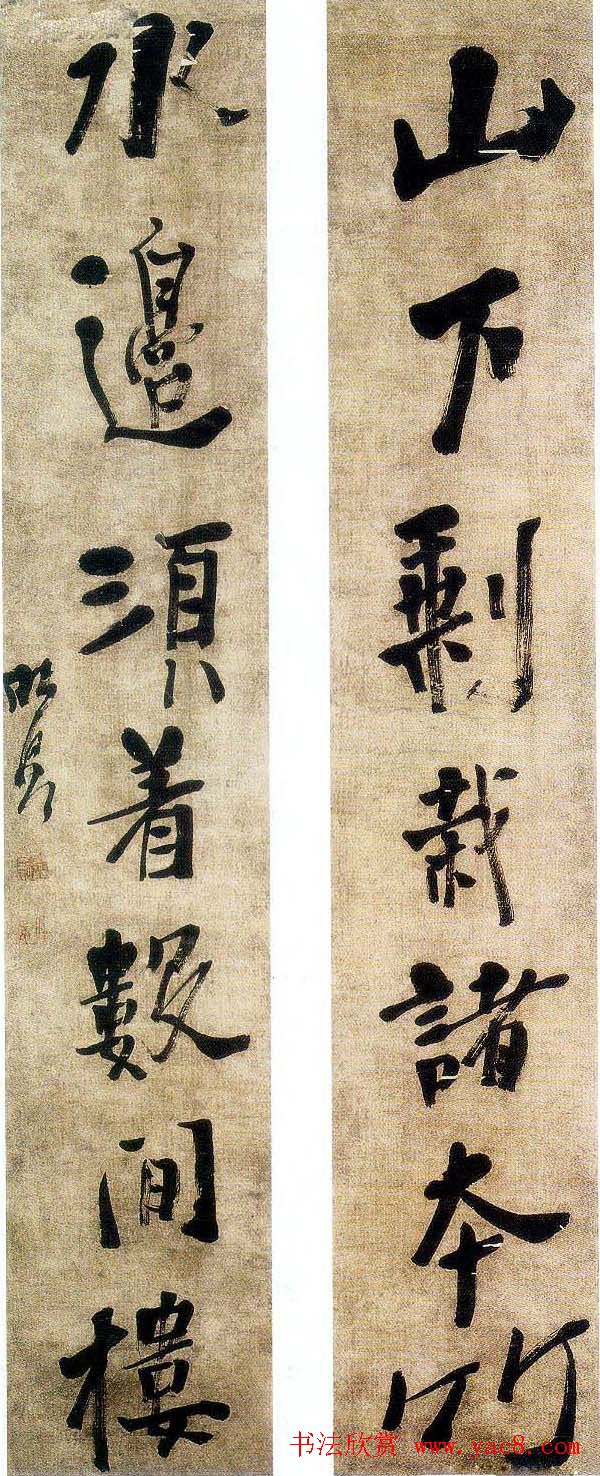 山下剩栽諸本竹
水邊須着數間樓
书法欣赏 www.yac8.com